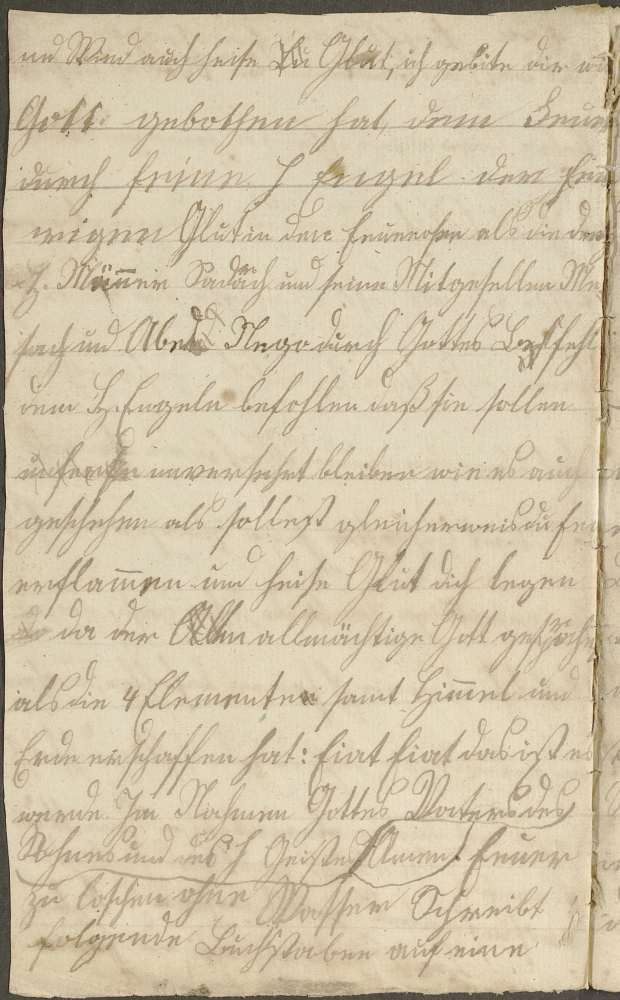 und Wind auch heise Glut, ich gebite dir wie
Gott gebothen hat, dem Feuer
durch seine H Engel der feu
rigen Glut in den Feuerofen als die drey
H. Männer Sadrach und seine Mitgesellen Me
sach und Abed Nego durch Gottes Befehl
dem H. Engeln befohlen daß sie sollen
unversehrt bleiben wie es auch
geschehen als sollest gleicherweis du feuer
erflammen und heise Glut dich legen
da der allmächtige Gott gesproche
als die 4 Elementen samt Himmel und
Erde erschaffen hat: fiat fiat das ist es
werde Im Nahmen Gottes Vaters des
Sohnes und des H Geistes Amen. Feuer
zu löschen ohne Wasser Schreibt
folgende Buchstaben auf eine